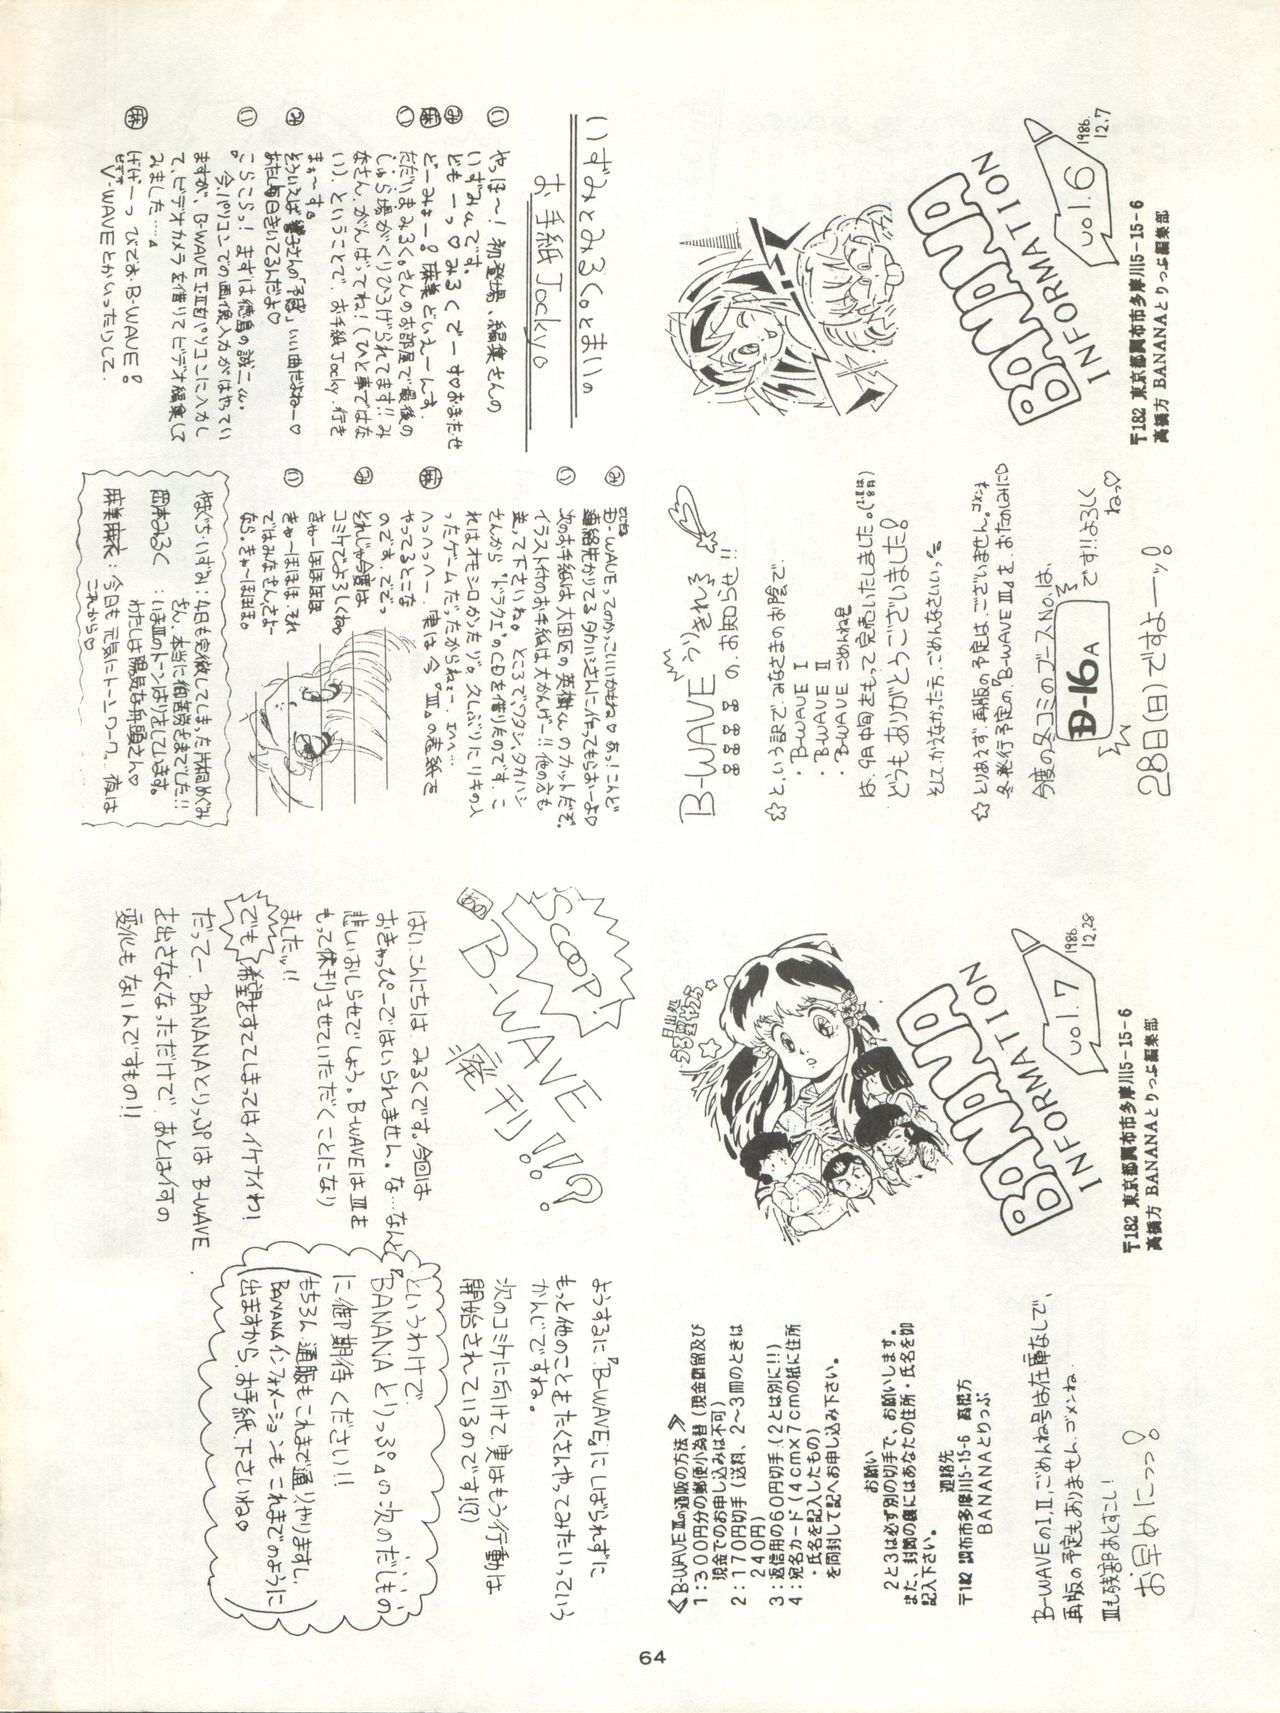 1986.
12.7
vol.6
BANANA
INFORMATION
〒182 東京都調布市多摩川5-15-6
高橋方 BANANAとりっぷ編集部
B-WAVE うりきれる
の、お知らせ!!
☆と、いう訳で、みなさまのお陰で、
・B-WAVE I
・B-WAVE II
・B-WAVE ごめんね号
は、9月中旬をもって完売いたしました。
どうもありがとうございました!
そして、かえなかった方、ごめんなさいいっ
☆とりあえず、再版の予定は、ございません。ゴメンネ
冬、発行予定の、"B-WAVE III"を、おたのしみに♡
今度の冬コミのブースNo.は、
D-16A
です!!よろしく
ねっ♡
28日(日)ですよーッ!
いずみとみるく。とまいの
お手紙Jockyo
い やっほ〜!初登場、編集さんの
いずみんです。
み ども一っ♡みるくで一す♡おまたせ
麻 ど一みょ一!麻美どいえ一んす。
い ただいまみるく。さんのお部屋で最後の
しゅら場がくりひろげられてます!!み
なさん、がんばってね!(ひと事ではな
い)、ということで、お手紙Jocky、行き
まぁ〜す。
み そういえば響子さんの「予感」いい曲だね一♡
あたし毎日きいてるんだよ♡
い こらこらっ!まずは徳島の誠二くん。
"今、パソコンでの画像入力がはやってい
ますが、B-WAVE I・IIをパソコンに入力し
て、ビデオカメラを借りてビデオ編集して
みました……
麻 げげ一っ びでおB-WAVE!
V-WAVEとかいったりして.
み 連絡先かりてるタカハシさんに作ってもらお一よ♡
い 次のお手紙は大田区の英樹くんのカットだぞ。
イラスト付のお手紙は大かんげー!!他の方も
送って下さいね。ところで、ワタシ、タカハシ
さんから"ドラクエ"のCDを借りたのです。こ
れはオモシロかったゾ。久しぶりにリキの入
ったゲームだったからねェ… エヘヘ…
麻 へっへっへ一、実は今『III』の表紙を
やってるとこな
のです、でっ
み それじゃ今度は
コミケでよろしくね。
い きゃ一ほほほほ
きゃ一ほほほ、それ
ではみなさんさよ一
なら。きゃ一ほほほ。
やぐち・いずみ:4日も完徹してしまった片桐めぐみ
さん、本当に御苦労さまでした!!
岡本みるく :いまIIIのトーンはりをしています。
わたしは陽気な船頭さん♡
麻美麻衣:今日も元気にトーンワーク。夜は
これから♡
1986.
12.28
vol.7
BANANA
INFORMATION
〒182 東京都調布市多摩川5-15-6
高橋方 BANANAとりっぷ編集部
日出処
うる星やつら
《B-WAVE IIIの通販の方法》
1:300円分の郵便小為替(現金書留及び
現金でのお申し込みは不可)
2:170円切手(送料、2〜3冊のときは
240円)
3:返信用の60円切手(2とは別に!!)
4:宛名カード(4cm×7cmの紙に住所
・氏名を記入したもの)
を同封して記へお申し込み下さい。
お願い
2と3は必ず別の切手で、お願いします。
また、封筒の裏にはあなたの住所・氏名を御
記入下さい。
連絡先
〒182 調布市多摩川5-15-6 高橋方
BANANAとりっぷ
B-WAVEのI、II、ごめんね号は在庫なしで、
再版の予定もありません、ゴメンね
IIIも残部あとすこし!
お早めにっっ!
SCOOP!
あの
B-WAVE
廃刊!!?
はい、こんにちは、みるくです。今回は
おきゃっぴーではいられません。な…なんと
悲しいおしらせでしょう。B-WAVEはIIIを
もって休刊させていただくことになり
ましたッ!!
でも希望をすててしまってはイケナイわ!
だってー、BANANAとりっぷはB-WAVE
を出さなくなっただけで、あとは何の
変化もないんですもの!!
ようするに『B-WAVE』にしばられずに
もっと他のこともたくさんやってみたいっていう
かんじですね。
次のコミケに向けて、実はもう行動は
開始されているのです!(?)
というわけで、
BANANAとりっぷ。の次のだしもの
に御期待ください!!
もちろん通販もこれまで通りやりますし、
BANANAインフォメーションもこれまでのように
出ますから、お手紙下さいね♡
64